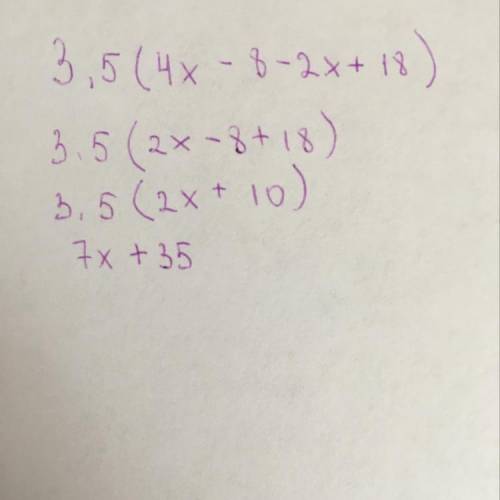 3,5(4x - 8 - 2x + 18)
3.5(2x - 8 + 18)
3.5(2x + 10)
7x + 35